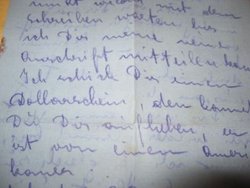 wieder mit dem
Schreiben warten bis
ich Dir meine neue
Anschrift mitteilen kann
Ich schicke Dir einen
Dollarschein, den kannst
Du Dir aufheben, er
ist von einem Ameri